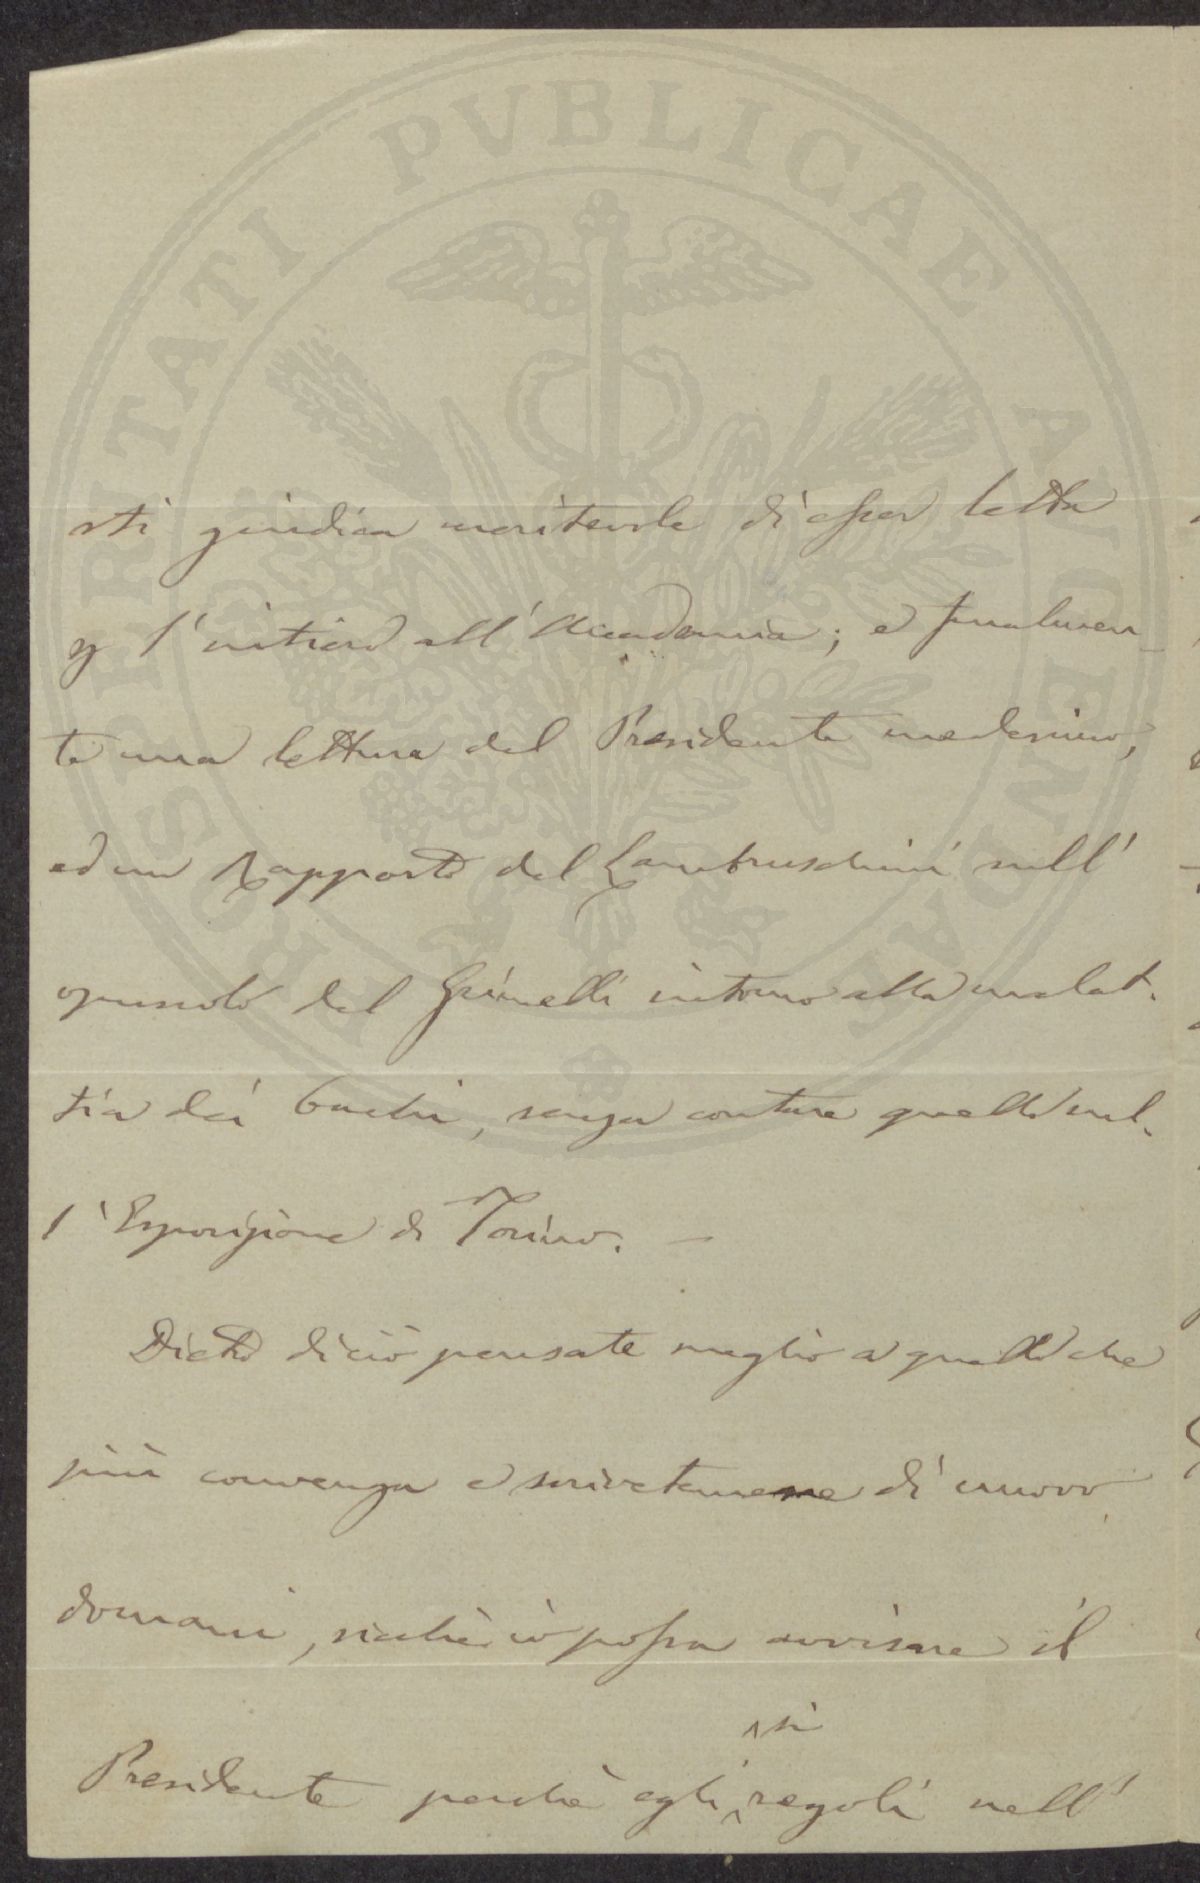 PROSPERITATI PVBLICAE AVGENDAE
sti giudica meritevole di esser letta
p l'intiero all'Accademia; e finalmen
te una lettura del Presidente medesimo,
ed un Rapporto del Lambruschini sull'
opuscolo del Grimelli intorno alla malat-
tia dei bachi, senza contare quello sul-
l'Esposizione di Torino. —
Dietro di ciò pensate meglio a quello che
più convenga e scrivetemene di nuovo
domani, sicchè io possa avvisare il
si
Presidente perchè egli regoli nell'